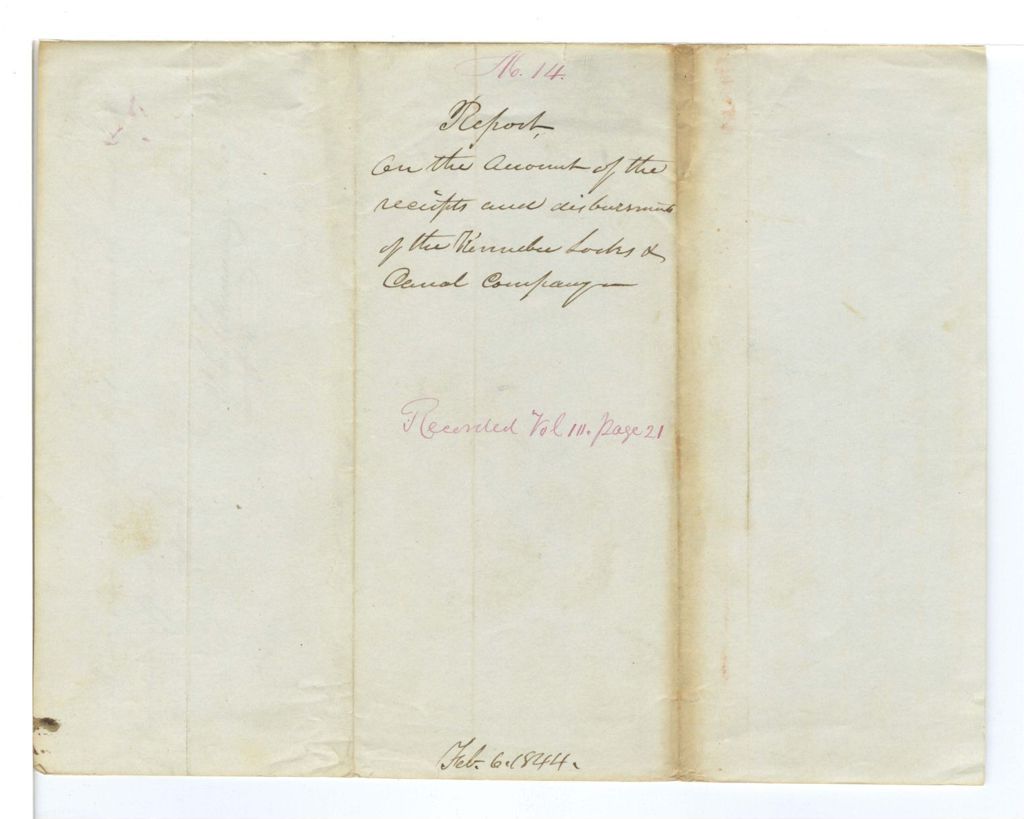 No. 14.
Report,
On the Account of the
receipts and disbursments
of the Kennebec Locks &
Canal Company—
Recorded Vol III. page 21
Feb. 6. 1844.